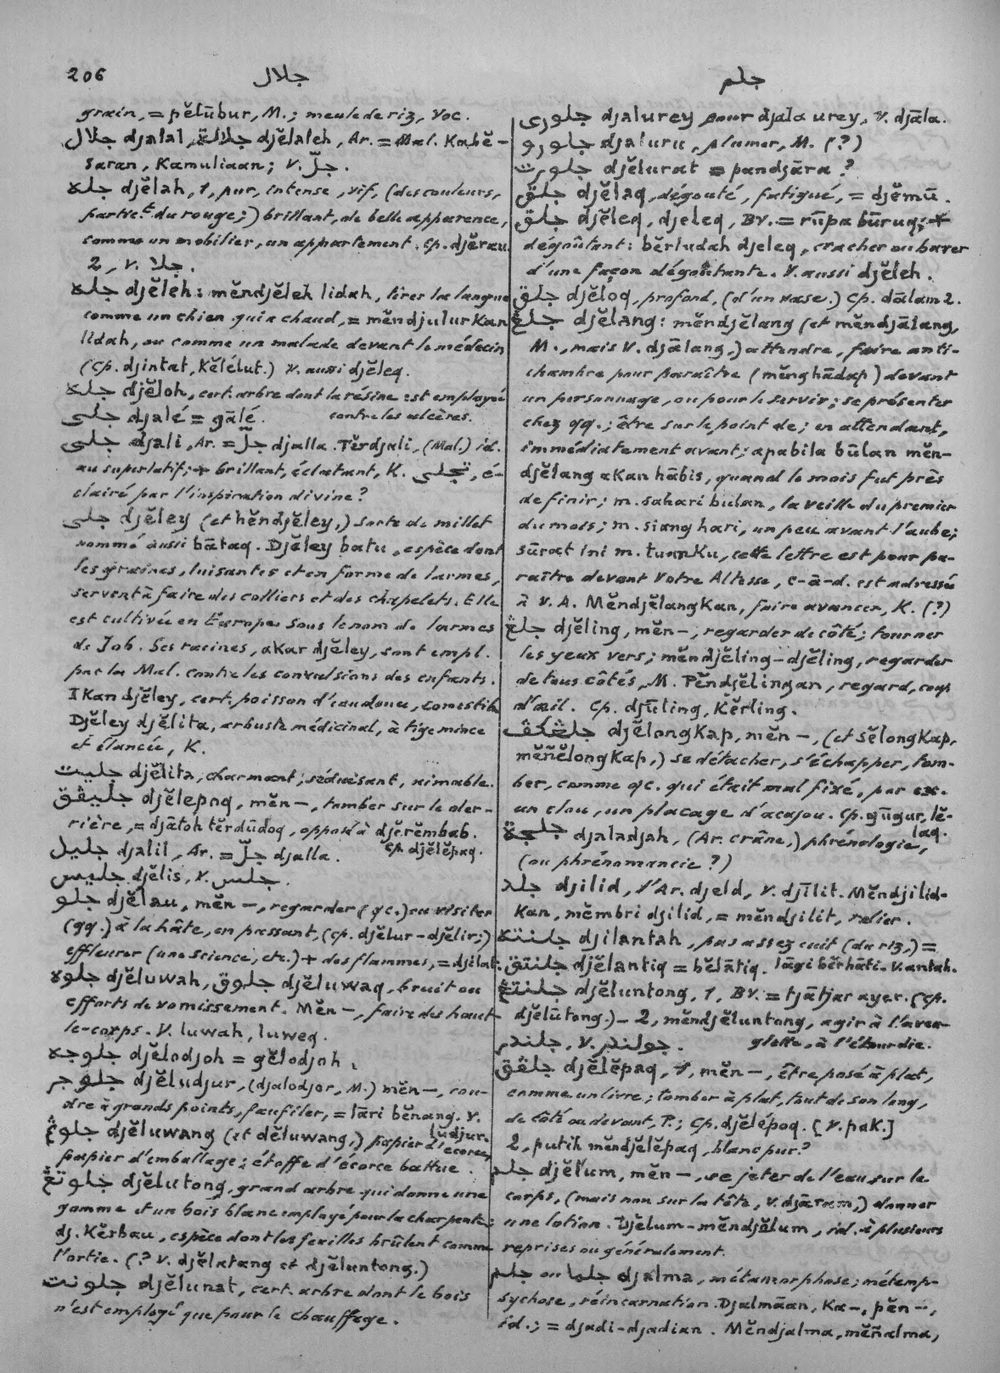 206
جلال
جلم
grain, = pĕlūbur, M.; meule de riz, Voc.
جلال djalal, جلالة djĕlaleh, Ar. = Mal. Kabĕ-
saran, Kamuliaan; V. جلّ.
جله djĕlah, 1, pur, intense, vif, (des couleurs,
partict. du rouge;) brillant, de belle apparence,
comme un mobilier, un appartement. Cp. djĕrau
2, V. جلا.
جله djĕleh: mĕndjĕleh lidah, tirer la langue
comme un chien qui a chaud, = mĕndjulurkan
lidah, ou comme un malade devant le médecin
(Cp. djintat, Kĕlélut.) V. aussi djĕleq.
جله djĕloh, cert. arbre dont la résine est employée
contre les ulcères.
جلى djalé = gālé.
جلى djali, Ar. = جلّ djalla. Tĕrdjali, (Mal.) id.
au superlatif; + brillant, éclatant, K. تجلى, é-
clairé par l'inspiration divine?
جلى djĕley (et hĕndjĕley,) sorte de millet
nommé aussi bātaq. Djĕley batu, espèce dont
les graines, luisantes et en forme de larmes,
servent à faire des colliers et des chapelets. Elle
est cultivée en Europe sous le nom de larmes
de Job. Ses racines, akar djĕley, sont empl.
par les Mal. contre les convulsions des enfants.
Ikan djĕley, cert. poisson d'eau douce, comestible
Djĕley djĕlita, arbuste médicinal, à tige mince
et élancée, K.
جليت djĕlita, charmant, séduisant, aimable.
جليڤق djĕlepoq, mĕn-, tomber sur le der-
rière, = djātoh tĕrdūdoq, opposé à djĕrĕmbab.
Cp. djĕlĕpaq.
جليل djalil, Ar. = جلّ djalla.
جليس djĕlis, V. جلس.
جلو djĕlau, mĕn-, regarder (qc.) ou visiter
(qq.) à la hâte, en passant, (cp. djĕlur-djĕlir;)
effleurer (une science, etc.) + des flammes, = djilat.
جلوه djĕluwah, جلوق djĕluwaq, bruit ou
efforts de vomissement. Mĕn-, faire des haut-
le-corps. V. luwah, luweq.
جلوجه djĕlodjoh = gĕlodjoh.
جلوجر djĕludjur, (djalodjor, M.) mĕn-, cou-
dre à grands points, faufiler, = lāri bĕnang. V.
lūdjur.
جلوڠ djĕluwang (et dĕluwang,) papier d'écorce,
papier d'emballage; étoffe d'écorce battue.
جلوتڠ djĕlutong, grand arbre qui donne une
gomme et un bois blanc employé pour la charpente;
dj. Kĕrbau, espèce dont les feuilles brûlent comme
l'ortie. (? V. djĕlatang et djĕluntong.)
جلونت djĕlunat, cert. arbre dont le bois
n'est employé que pour le chauffage.
جلورى djalurey pour djala urey, V. djāla.
جلورو djaluru, plumer, M. (?)
جلورت djĕlurat = pandjāra?
جلق djĕlaq, dégouté, fatigué, = djĕmū.
جلق djĕleq, djeleq, BV. = rūpa būruq; +
dégoûtant: bĕrludah djeleq, cracher ou baver
d'une façon dégoûtante. V. aussi djĕleh.
جلق djĕloq, profond, (d'un vase.) Cp. dālam 2.
جلڠ djĕlang: mĕndjĕlang (et mĕndjālang,
M., mais V. djālang,) attendre, faire anti-
chambre pour paraître (mĕnghādap) devant
un personnage, ou pour le servir; se présenter
chez qq.; être sur le point de; en attendant,
immédiatement avant; apabila būlan mĕn-
djĕlang akan hābis, quand le mois fut près
de finir; m. sahari bulan, la veille du premier
du mois; m. siang hari, un peu avant l'aube;
sūrat ini m. tuanku, cette lettre est pour pa-
raître devant Votre Altesse, c-à-d. est adressée
à V. A. Mĕndjĕlangkan, faire avancer, K. (?)
جلڠ djĕling, mĕn-, regarder de côté; tourner
les yeux vers; mĕndjĕling-djĕling, regarder
de tous côtés, M. Pĕndjĕlingan, regard, coup
d'œil. Cp. djūling, Kĕrling.
جلڠكڤ djĕlongkap, mĕn-, (et sĕlongkap,
mĕñĕlongkap,) se détacher, s'échapper, tom-
ber, comme qc. qui était mal fixé, par ex.
un clou, un placage d'acajou. Cp. gūgur, lĕ-
laq.
جلجة djaladjah, (Ar. crâne,) phrénologie,
(ou phrénomancie?)
جلد djilid, l'Ar. djeld, V. djīlit. Mĕndjilid-
kan, mĕmbri djilid, = mĕndjilit, relier.
جلنته djilantah, pas assez cuit (du riz,) =
lāgi bĕrhāti. V. antah.
جلنتق djĕlantiq = bĕlātiq.
جلنتڠ djĕluntong, 1, BV. = tjātjar ayer. (Cp.
djĕlūtong.) - 2, mĕndjĕluntong, agir à l'aveu-
glette, à l'étourdie.
جلندر, V. جولندر.
جلڤق djĕlĕpaq, 1, mĕn-, être posé à plat,
comme un livre; tomber à plat, tout de son long,
de côté ou devant, P.; Cp. djĕlépoq. [V. pak.]
2, putih mĕndjĕlĕpaq, blanc pur?
جلم djĕlum, mĕn-, se jeter de l'eau sur le
corps, (mais non sur la tête, V. djāram,) donner
une lotion. Djĕlum-mĕndjĕlum, id. à plusieurs
reprises ou généralement.
جلم ou جلما djalma, métamorphose; métemp-
sychose, réincarnation. Djalmāan, Ka-, pĕn-,
id.; = djadi-djadian. Mĕndjalma, mĕñalma,